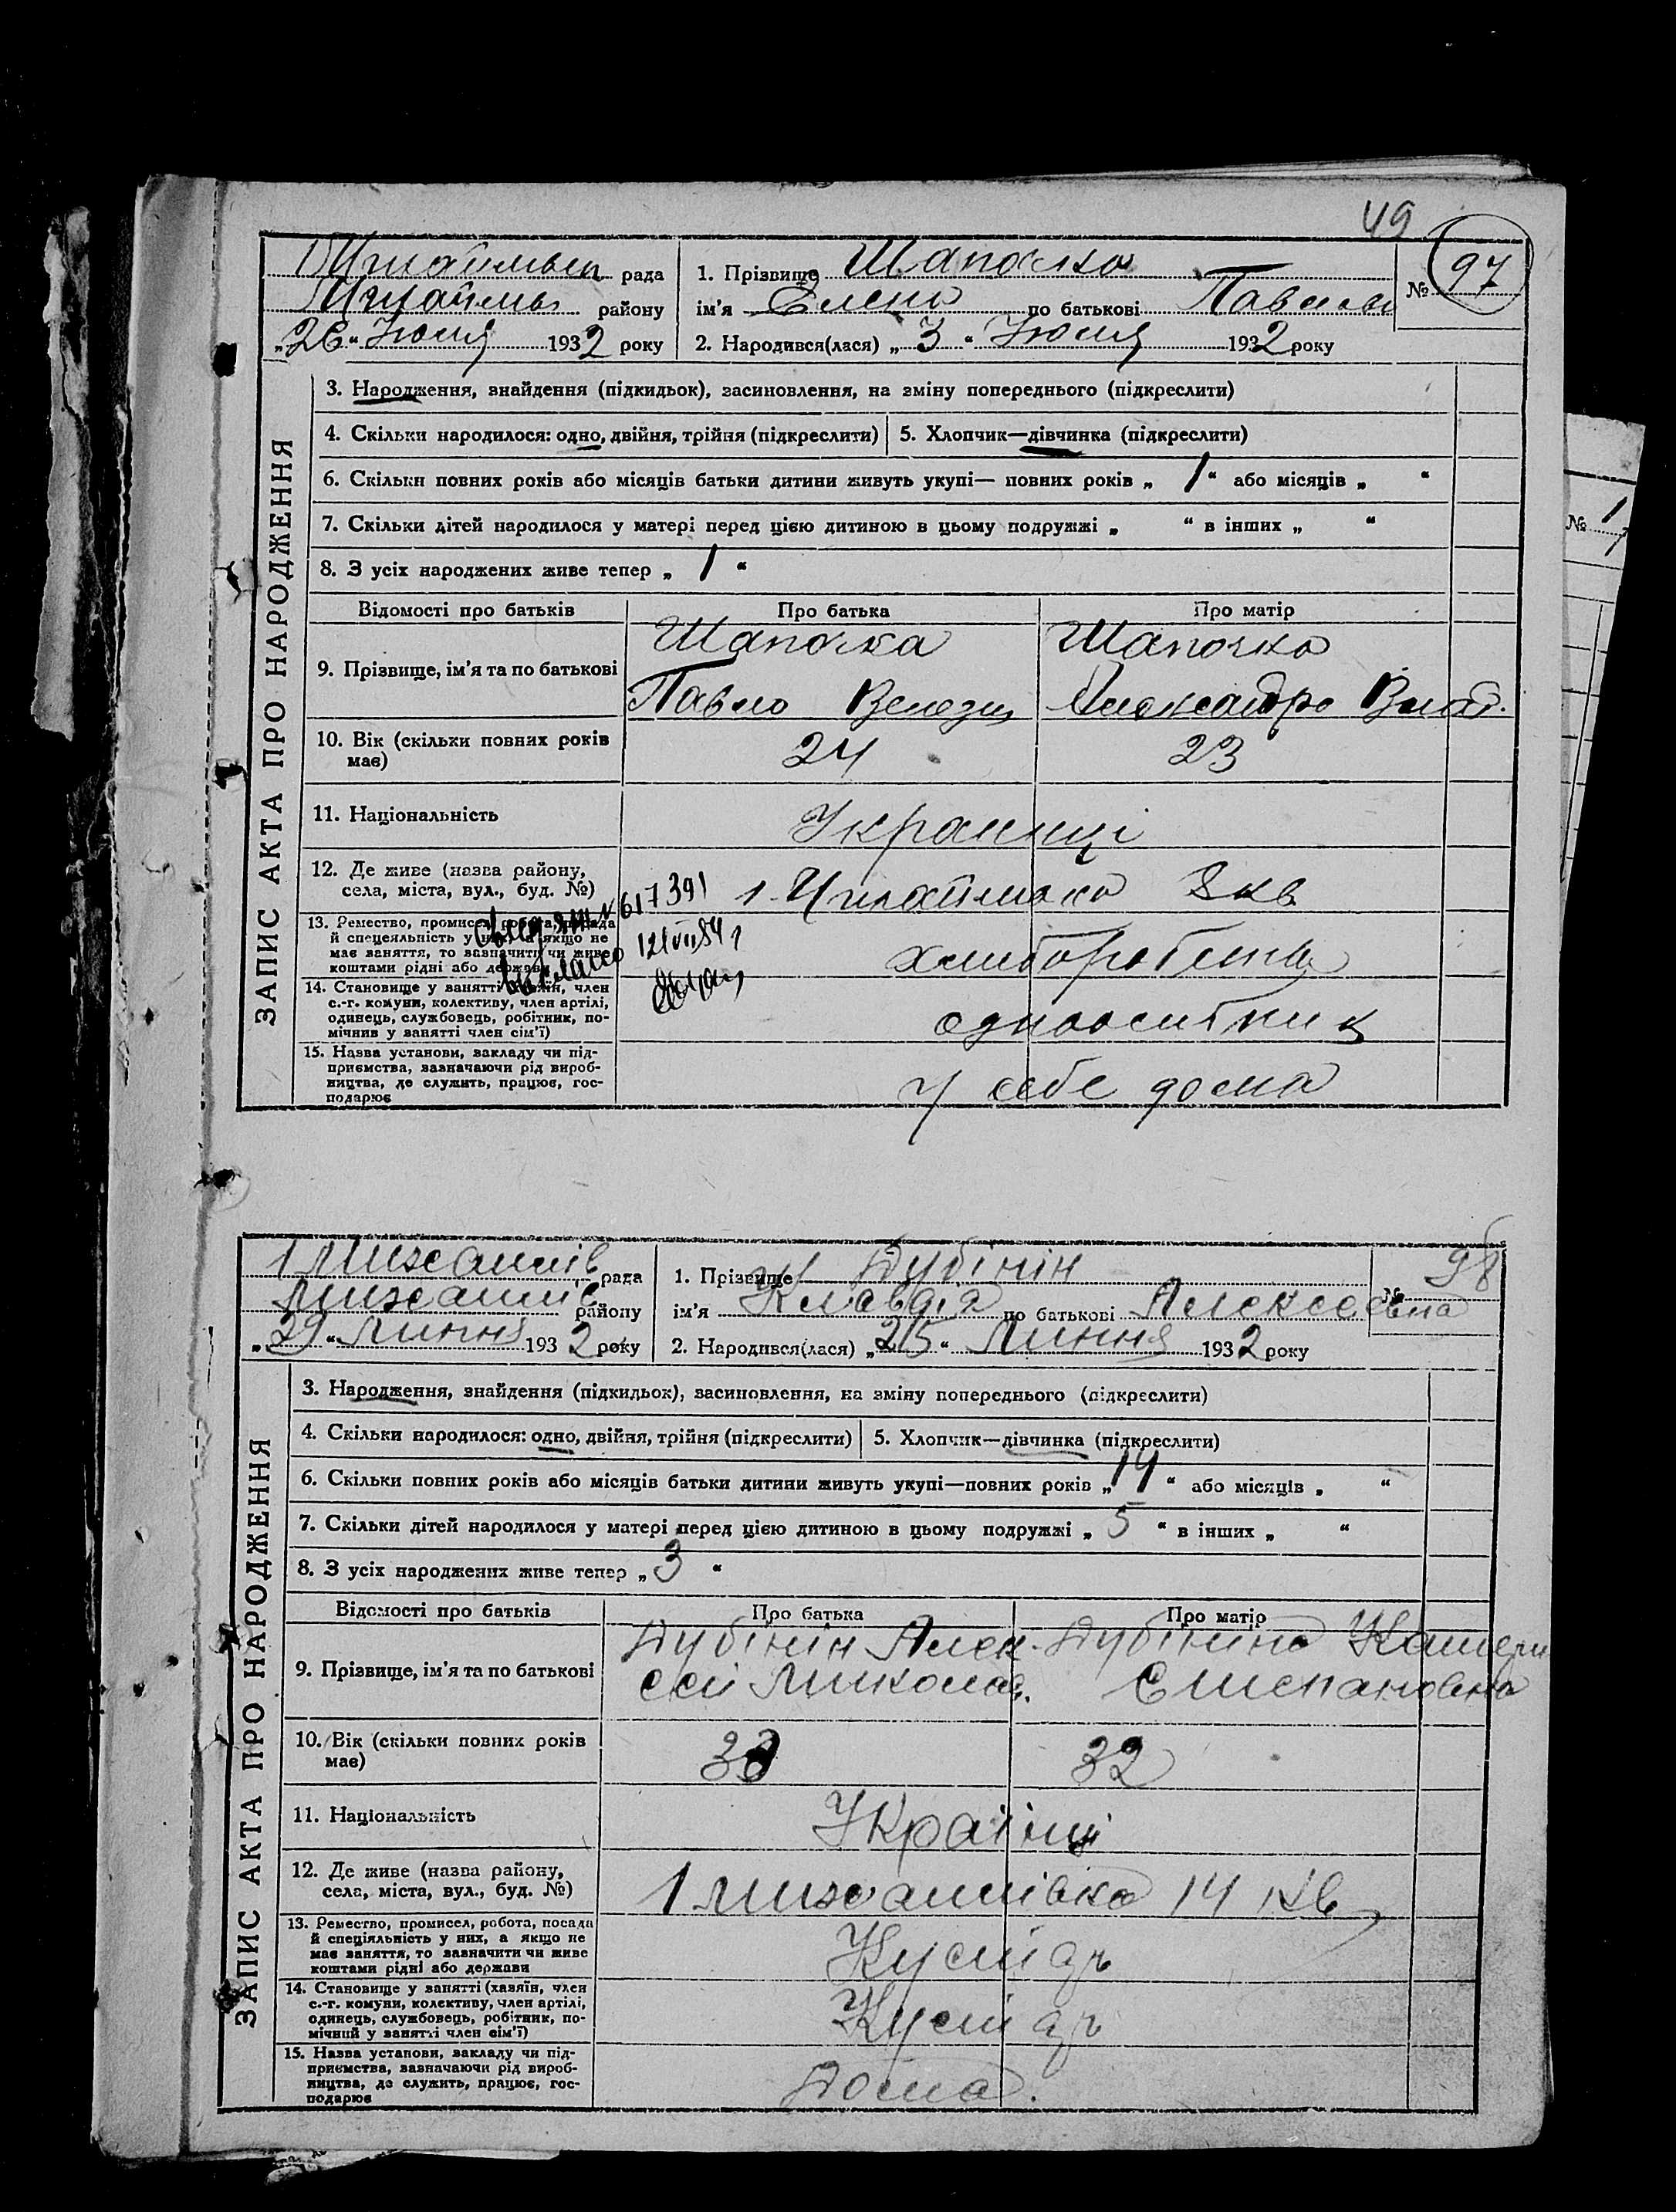 49
рада
району
"26" Июля 1932 року
1. Прізвище Шапочка
ім'я Елена по батькові Павел
2. Народився(лася) "3" Июля 1932 року
№ 97
ЗАПИС АКТА ПРО НАРОДЖЕННЯ
3. Народження, знайдення (підкидьок), засиновлення, на зміну попереднього (підкреслити)
4. Скільки народилося: одно, двійня, трійня (підкреслити)
5. Хлопчик—дівчинка (підкреслити)
6. Скільки повних років або місяців батьки дитини живуть укупі— повних років „ 1 “ або місяців „ “
7. Скільки дітей народилося у матері перед цією дитиною в цьому подружжі „ “ в інших „ “
8. З усіх народжених живе тепер „ 1 “
Відомості про батьків
Про батька
Про матір
9. Прізвище, ім'я та по батькові
Шапочка
Павло
Шапочка
Александра
10. Вік (скільки повних років
має)
24
23
11. Національність
Украинці
12. Де живе (назва району,
села, міста, вул., буд. №)
8 кв
13. Ремество, промисел, робота, посада
й спеціяльність у них, а якщо не
має заняття, то зазначити чи живе
коштами рідні або держави
№ 617391
выслано
хлиборобство
14. Становище у занятті (хазяїн, член
с.-г. комуни, колективу, член артілі,
одинець, службовець, робітник, по-
мічник у занятті член сім'ї)
одноосибник
15. Назва установи, закладу чи під-
приємства, зазначаючи рід вироб-
ництва, де служить, працює, гос-
подарює
у себе дома
№ 1
1 Михайлів рада
Михайлів району
"29" Липня 1932 року
1. Прізвище Дубінін
ім'я Клавдія по батькові Алексеевна
2. Народився(лася) „25“ Липня 1932 року
№ 98
ЗАПИС АКТА ПРО НАРОДЖЕННЯ
3. Народження, знайдення (підкидьок), засиновлення, на зміну попереднього (підкреслити)
4. Скільки народилося: одно, двійня, трійня (підкреслити)
5. Хлопчик—дівчинка (підкреслити)
6. Скільки повних років або місяців батьки дитини живуть укупі—повних років „ 14 “ або місяців „ “
7. Скільки дітей народилося у матері перед цією дитиною в цьому подружжі „ 5 “ в інших „ “
8. З усіх народжених живе тепер „ 3 “
Відомості про батьків
Про батька
Про матір
9. Прізвище, ім'я та по батькові
Дубінін Алек-
сей Микола.
Дубініна Катери
Степановна
10. Вік (скільки повних років
має)
32
11. Національність
Українці
12. Де живе (назва району,
села, міста, вул., буд. №)
1 Михайлівка 14 кв
13. Ремество, промисел, робота, посада
й спеціяльність у них, а якщо не
має заняття, то зазначити чи живе
коштами рідні або держави
Кустарь
14. Становище у занятті (хазяїн, член
с.-г. комуни, колективу, член артілі,
одинець, службовець, робітник, по-
мічний у занятті член сім'ї)
Кустарь
15. Назва установи, закладу чи під-
приємства, зазначаючи рід вироб-
ництва, де служить, працює, гос-
подарює
Дома.